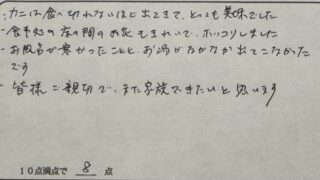 ・カニは食べ切れないほど出てきて、とっても美味でした
・食事処の床の間のお花もきれいで、ホッコリしました
・お風呂が寒かったことと、お湯がなかなか出てこなかった
です
・皆様ご親切で、また家族できたいと思います
10点満点で 8 点